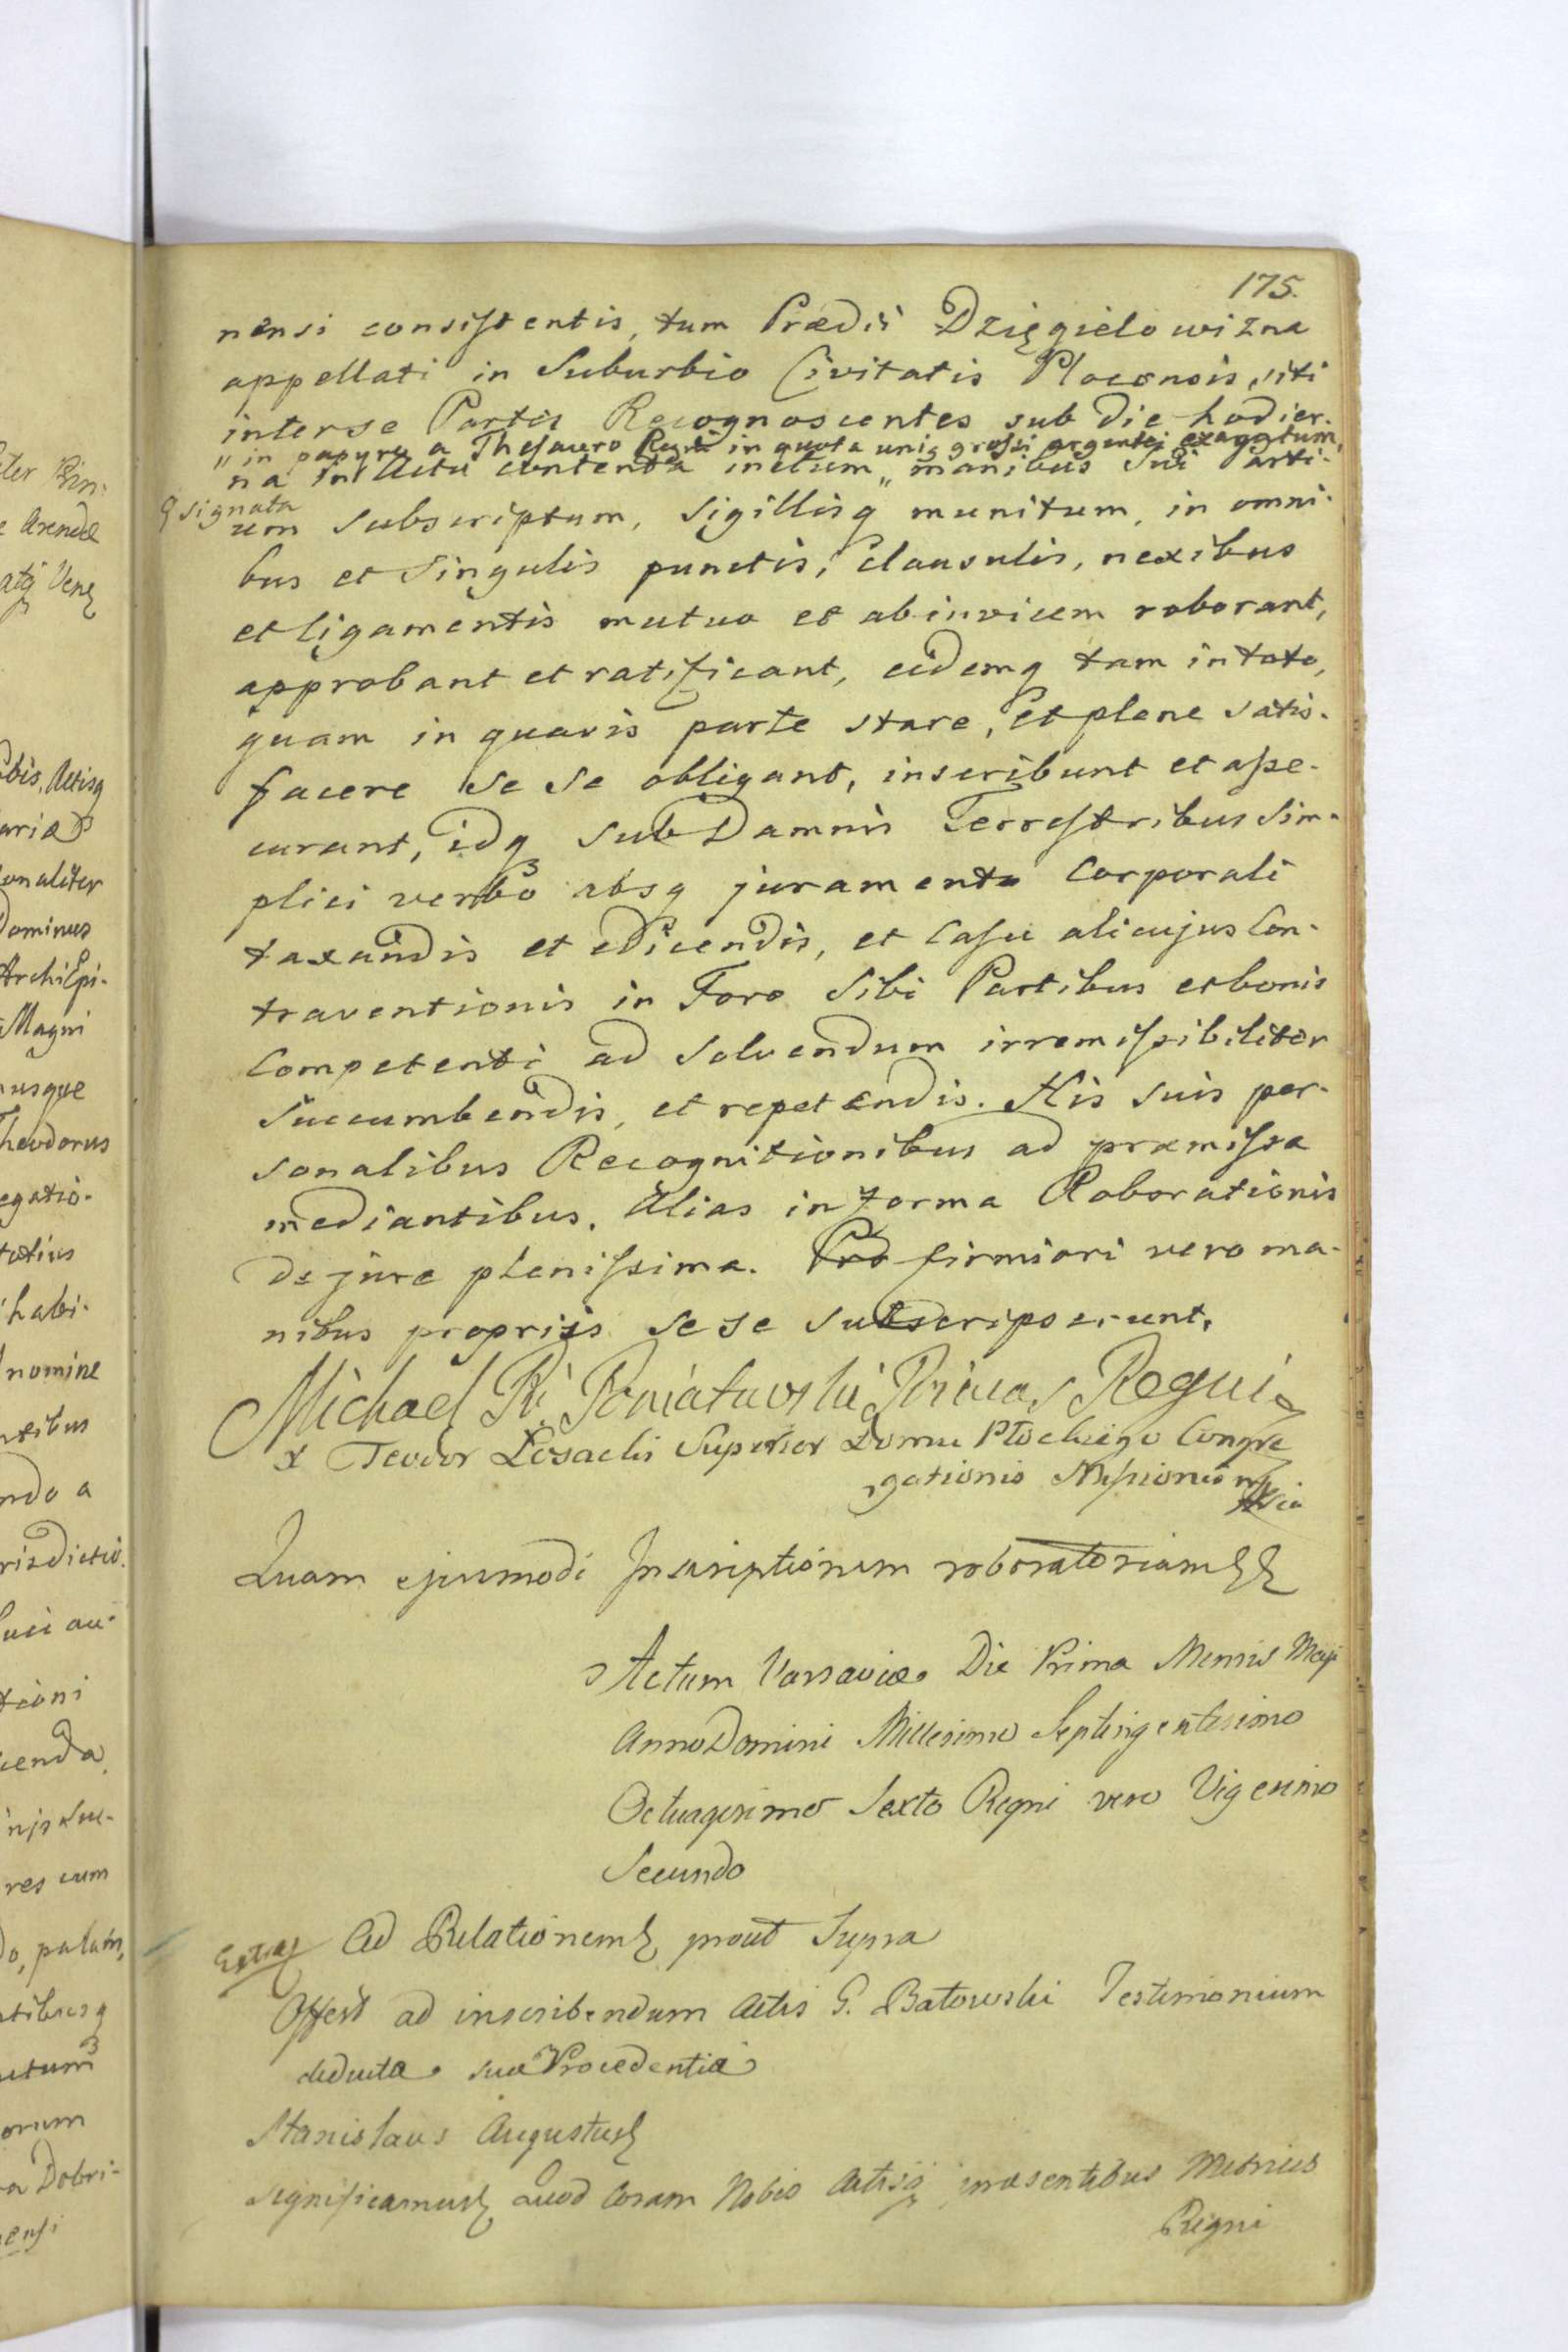 175.
nensi consistentis, tum Prædii Dzięgielowizna
appellati in Suburbio Civitatis Plocensis, siti
interse Partes Recognoscentes sub die hodier-
" in papyro a Thesauro Regni in quota unis grossi argentei exaratum,
na in Actu contenta initum " manibus Sui Parti-
signata
um subscriptum, sigillisq munitum, in omni-
bus et singulis punctis, clausulis, nexibus
et ligamentis mutuo et abinvicem roborant,
approbant et ratificant, eidemq tam in toto,
quam in quavis parte stare, et plene satis-
facere se se obligant, inscribunt et asse-
curant, idq sub Damnis Terrestribus Sim-
plici verbo absq juramento Corporali
taxandis et edicendis, et Casu alicujus Con-
traventionis in Foro Sibi Partibus et bonis
Competenti ad solvendum irremissibiliter
Succumbendis, et repetendis. His suis per-
sonalibus Recognitionibus ad præmissa
mediantibus. Alias in forma Roborationis
de jure plenissima. Pro firmiori vero ma-
nibus propriis se se subscripserunt.
Michael Poniatowski Primas Regni
X Teodor Superior Domu Płockiego Congre
gationis Missionis
Quam ejusmodi Inscriptionem roboratoriam
Actum Varsaviæ Die Prima Mensis Maji
Anno Domini Millesimo Septingentesimo
Octuagesimo Sexto Regni vero Vigesimo
Secundo
Ad Relationem prout Supra
Offert ad inscribendum Actis G. Batowski Testimonium
deducta suæ Procedentiæ
Stanislaus Augustus
Significamus Quod Coram Nobis Actisq præsentibus Metrices
Regni
ter Prin-
e Arendæ
atq Venq
obis, Actisq
ariæ
sonaliter
Dominus
ArchiEpi-
Magni
usque
Theodorus
egatio-
totius
habi-
nomine
ntibus
ndo a
risdictio
luci au-
tioni
cenda
nis suc-
res cum
do, palam,
tibusq
ctum
orum
a Dobri-
ensi